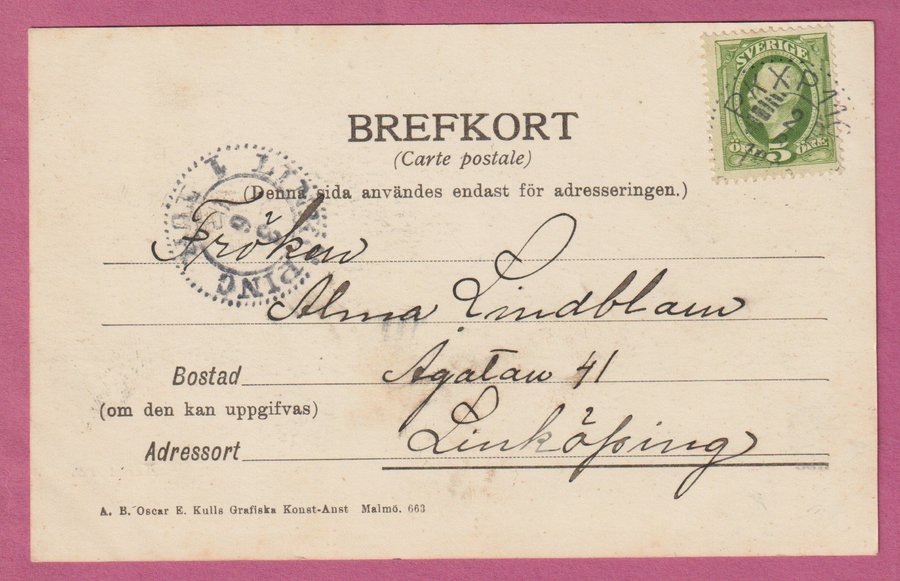 SVERIGE
5
ÖRE
BREFKORT
(Carte postale)
(Denna sida användes endast för adresseringen.)
LINKÖPING
Fröken
Alma Lindblam
Agatan 41
Bostad
(om den kan uppgifvas)
Linköping
Adressort
A. B. Oscar E. Kulls Grafiska Konst-Anst Malmö. 663